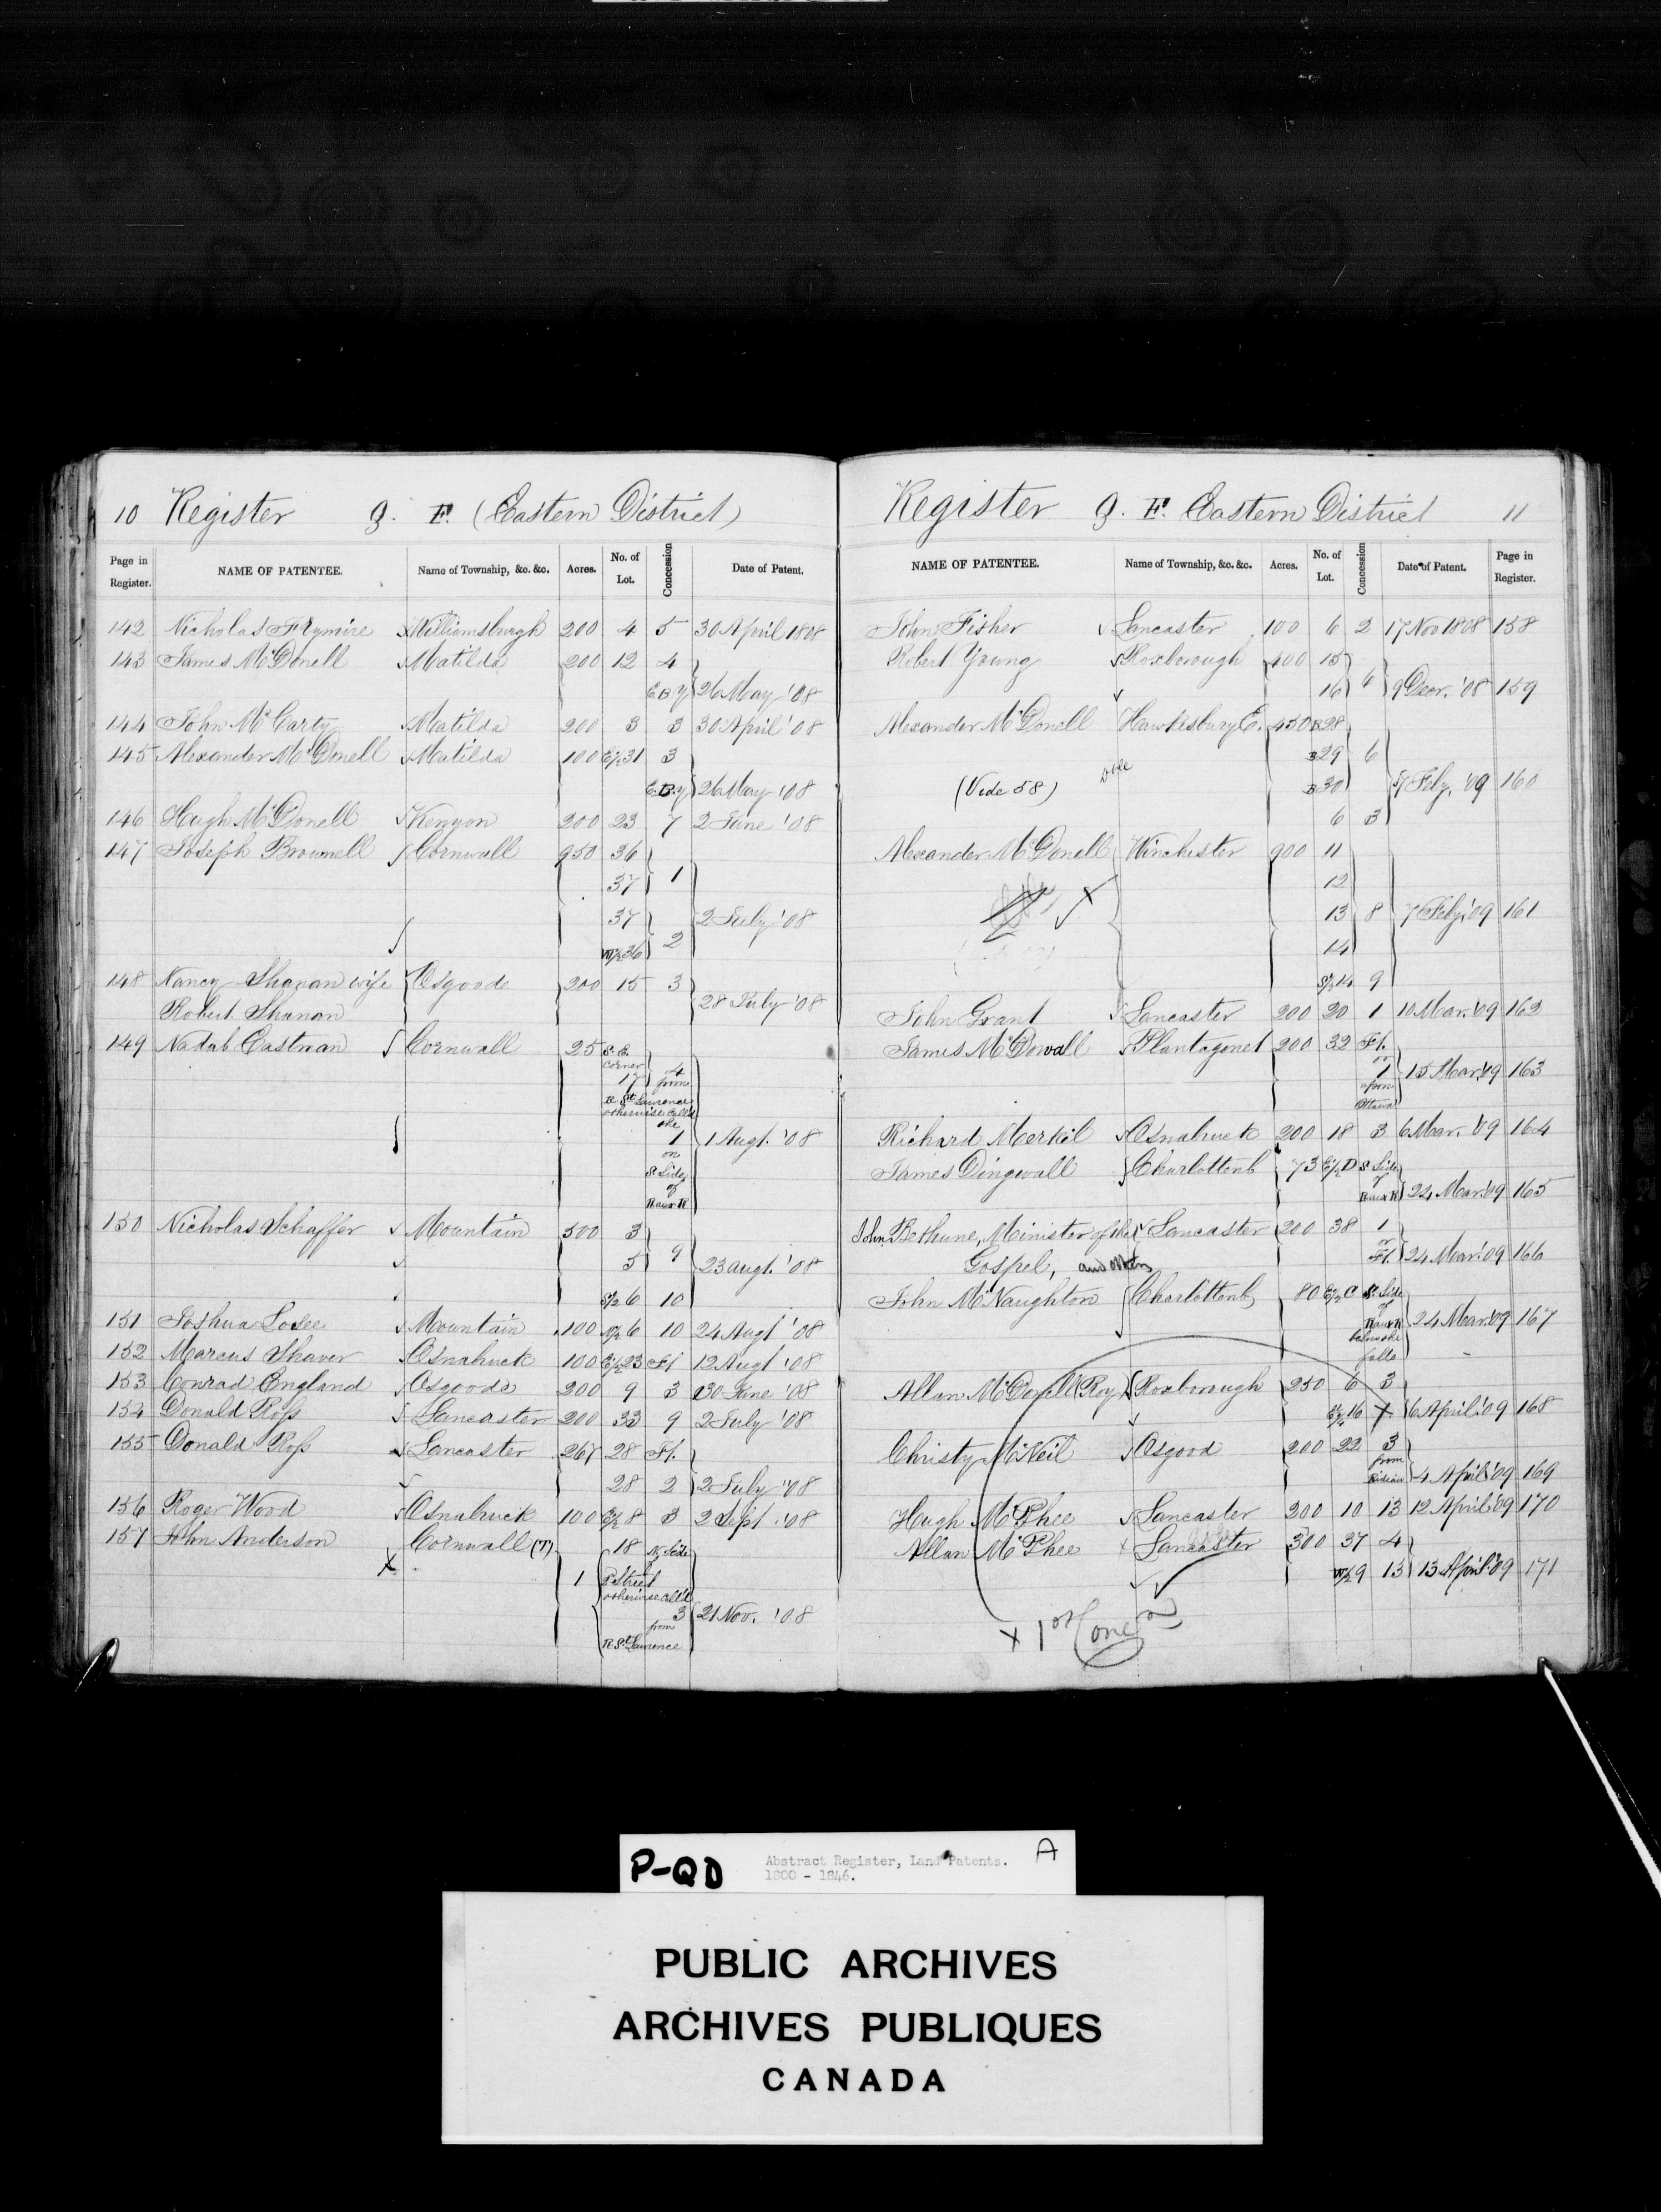 10 Register G. F. (Eastern District)
Page in Register. NAME OF PATENTEE. Name of Township, &c. &c. Acres. No. of Lot. Concession Date of Patent.
142 Nicholas Frymire Williamsburgh 200 4 5 30 April 1808
143 James McDonell Matilda 200 12 4
E B y 26 May '08
144 John McCarty Matilda 200 3 3 30 April '08
145 Alexander McDonell Matilda 100 E½31 3
E.B.y 26 May '08
146 Hugh McDonell Kenyon 200 23 7 2 June '08
147 Joseph Brownell Cornwall 950 36
37 1
37 2 July '08
W½36 2
148 Nancy Shanan wife Osgoode 200 15 3
Robert Shanan 28 July '08
149 Nadab Eastman Cornwall 25 S.E.
Corner
17 4 from
R St Lawrence
otherwise call'd
the
1 1 Augt. '08
on
S. Side
of
Raux R
150 Nicholas Schaffer Mountain 500 3
5 9 23 augt. '08
S½ 6 10
151 Joshua Losee Mountain 100 N½ 6 10 24 Augt '08
152 Marcus Shaver Osnabruck 100 E½23 Ft 12 Augt '08
153 Conrad England Osgoode 200 9 3 30 June '08
154 Donald Ross Lancaster 200 33 9 2 July '08
155 Donald Ross Lancaster 267 28 Ft.
28 2 2 July '08
156 Roger Wood Osnabruck 100 E½ 8 3 2 Sept. '08
157 John Anderson Cornwall (T) 18 N. Side
x 1 of
P Street
otherwise call'd
3 21 Nov. '08
from
R St Lawrence
Register G. F. Eastern District 11
NAME OF PATENTEE. Name of Township, &c. &c. Acres. No. of Lot. Concession Date of Patent. Page in Register.
John Fisher Lancaster 100 6 2 17 Nov 1808 158
Robert Young Roxborough 400 15
16 6 9 Decr. '08 159
Alexander McDonell Hawkesbury E. 450 B28
B29 6
(Vide 58) B30 7 Feby. '09 160
6 3
Alexander McDonell Winchester 900 11
12
x 13 8 7 Feby '09 161
14
S½14 9
John Grant Lancaster 200 20 1 10 Mar. '09 162
James McDowall Plantagenet 200 32 Ft.
or
1 15 Mar. '09 163
upon
Ottawa
Richard Merkil Osnabruck 200 18 3 6 Mar. '09 164
James Dingwall Charlottenb 73 E½D S. Side
of
Raux R 24 Mar. '09 165
John Bethune, Minister of the Lancaster 200 38 1
or
Gospel, and others Ft. 24 Mar. '09 166
John McNaughton Charlottenb 80 E½ C S. Side
of
Raux R 24 Mar. '09 167
below the
falls
Allan McDonell (Roy) Roxborough 250 6 3
E¼16 x 6 April '09 168
Christy McNeil Osgood 200 22 3
from
Rideau 4 April '09 169
Hugh McPhee Lancaster 200 10 13 12 April '09 170
Allan McPhee x Lancaster 300 37 4
W½9 13 13 April '09 171
x 1st Con
P-QD Abstract Register, Land Patents. A
1800 - 1846.
PUBLIC ARCHIVES
ARCHIVES PUBLIQUES
CANADA